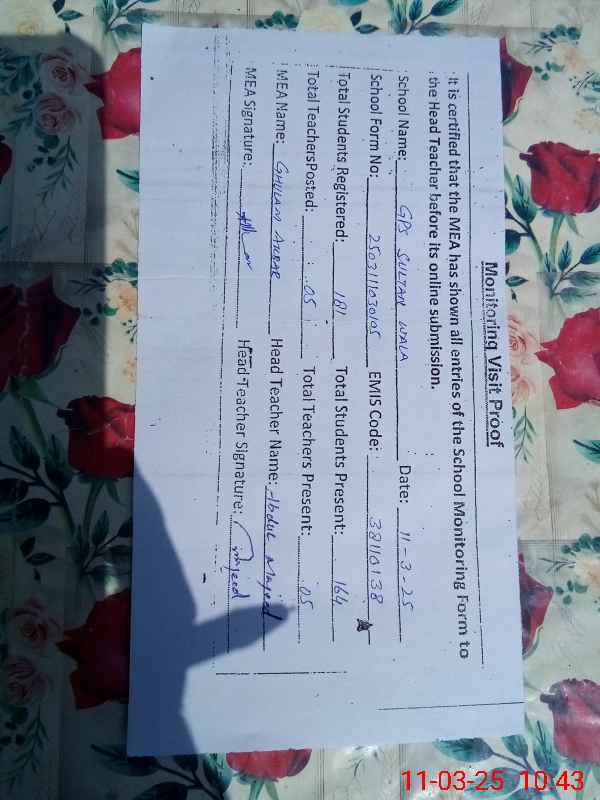 Monitoring Visit Proof
It is certified that the MEA has shown all entries of the School Monitoring Form to
the Head Teacher before its online submission.
School Name: GPS SULTAN WALA Date: 11-3-25
School Form No: 250311030105 EMIS Code: 38110138
Total Students Registered: 181 Total Students Present: 164
Total TeachersPosted: 05 Total Teachers Present: 05
MEA Name: GHULAM AKBAR Head Teacher Name: Abdul Majeed
MEA Signature: Head Teacher Signature: Majeed
11-03-25 10:43